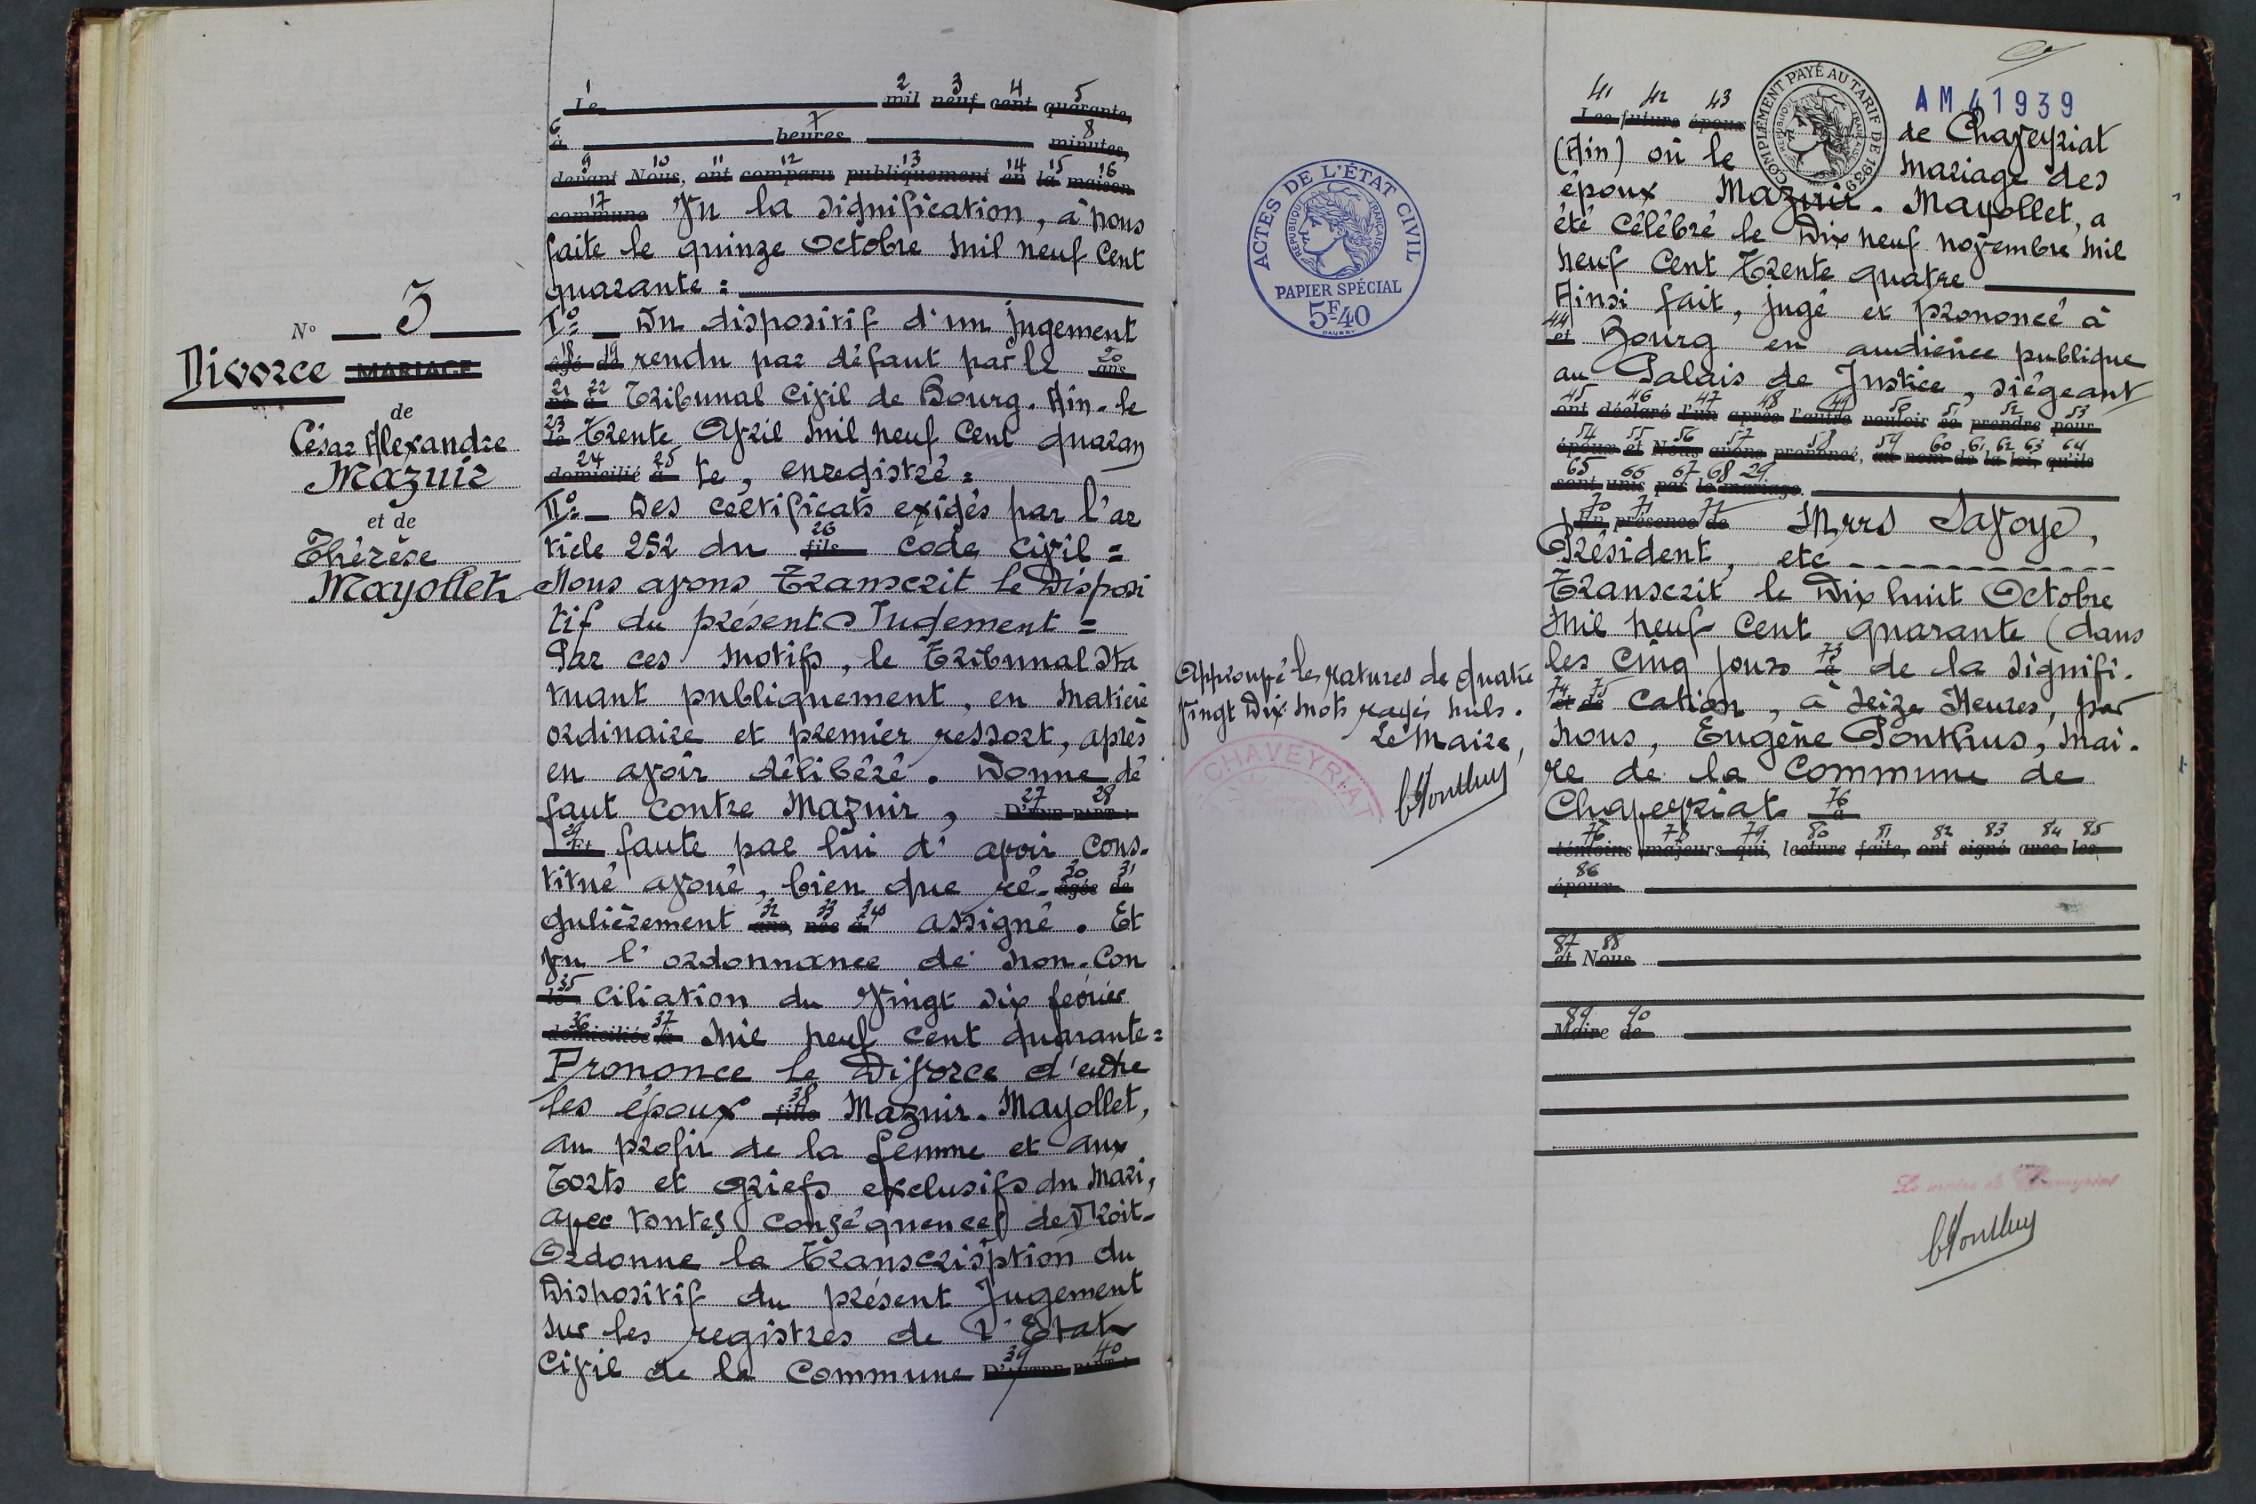 N° 3
Divorce MARIAGE
de
César Alexandre
Mazuir
et de
Thérèse
Mayollet
1 2 3 4 5
Le mil neuf cent quarante,
6 7 8
à heures minutes,
9 10 11 12 13 14 15 16
devant Nous, ont comparu publiquement en la maison
17
commune Vu la signification, à nous
faite le quinze Octobre mil neuf cent
quarante =
I° — Du dispositif d'un jugement
18 19 20
âgé de rendu par défaut par le ans
21 22
né à Tribunal Civil de Bourg. Ain. le
23
le Trente Avril mil neuf cent quaran
24 25
domicilié à te, enregistré =
II° — Des certificats exigés par l'ar
26
ticle 252 du fils Code Civil =
Nous avons Transcrit le Disposi
tif du présent Judement =
Par ces motifs, le Tribunal sta
tuant publiquement, en matière
ordinaire et premier ressort, après
en avoir délibéré. Donne dé
27 28
faut contre Mazuir, D'UNE PART :
29
Et faute par lui d'avoir cons.
30 31
titué avoué, bien que ré- âgée de
32 33 34
gulièrement ans, née à assigné. Et
vu l'ordonnance de non-con
35
le ciliation du Vingt six février
36 37
domiciliée à mil neuf cent quarante =
Prononce le Divorce d'entre
38
les époux fille Mazuir-Mayollet,
au profit de la femme et aux
Torts et griefs exclusifs du mari,
avec toutes conséquences de Droit-
Ordonne la Transcrisption du
Dispositif du présent Jugement
sur les registres de l'Etat
39 40
Civil de la Commune D'AUTRE PART :
ACTES DE L'ÉTAT CIVIL
RÉPUBLIQUE FRANÇAISE
PAPIER SPÉCIAL
5F.40
DAUSSY
Approuvé les ratures de quatre
vingt Dix mots rayés nuls.
Le Maire,
CHAVEYRIAT
COMPLÉMENT PAYÉ AU TARIF DE 1939
RÉPUBLIQUE FRANÇAISE
AM 41939
41 42 43
Les futurs époux de Chaveyriat
(Ain) où le mariage des
époux Mazuir. Mayollet, a
été célébré le Dix neuf novembre mil
neuf cent Trente quatre
Ainsi fait, jugé et prononcé à
44
et Bourg en audience publique
au Palais de Justice, siégeant
45 46 47 48 49 50 51 52 53
ont déclaré l'un après l'autre vouloir se prendre pour
54 55 56 57 58 59 60 61 62 63 64
époux et Nous avons prononcé, au nom de la loi, qu'ils
65 66 67 68 29
sont unis par le mariage.
70 71 72
En présence de Mrrs Savoye,
Président, etc
Transcrit le Dix huit Octobre
mil neuf cent quarante (dans
73
les cinq jours à de la signifi.
74 75
et de cation, à seize Heures, par
nous, Eugène Ponthus, Mai.
re de la Commune de
76
Chaveyriat à
76 78 79 80 81 82 83 84 85
témoins majeurs qui, lecture faite, ont signé avec les
86
époux
87 88
et Nous
89 90
Maire de
Le maire de Chaveyriat